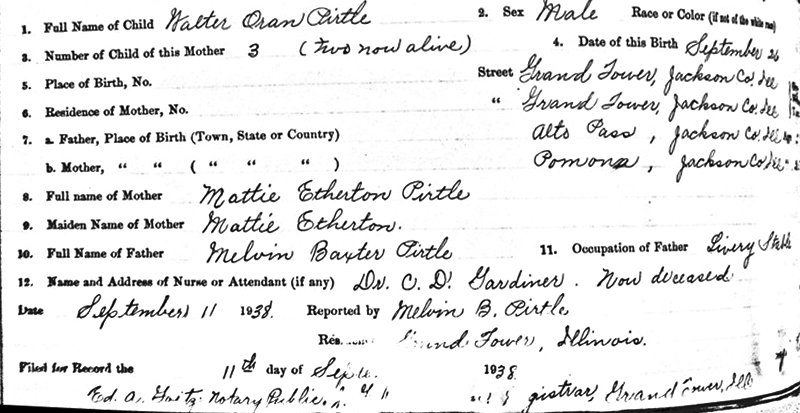 1. Full Name of Child Walter Oran Pirtle 2. Sex Male Race or Color (if not of the white race)
3. Number of Child of this Mother 3 (Two now alive) 4. Date of this Birth September 26
5. Place of Birth, No. Street Grand Tower, Jackson Co. Ill
6. Residence of Mother, No. " Grand Tower, Jackson Co. Ill
7. a. Father, Place of Birth (Town, State or Country) Alto Pass, Jackson Co. Ill
b. Mother, " " ( " " " ) Pomona, Jackson Co. Ill
8. Full name of Mother Mattie Etherton Pirtle
9. Maiden Name of Mother Mattie Etherton.
10. Full Name of Father Melvin Baxter Pirtle 11. Occupation of Father Livery Stable
12. Name and Address of Nurse or Attendant (if any) Dr. C. D. Gardiner. Now deceased
Date September 11 1938. Reported by Melvin B. Pirtle
Grand Tower, Illinois.
Filed for Record the 11th day of Sept. 1938
Ed. Notary Public. Grand Tower, Ill